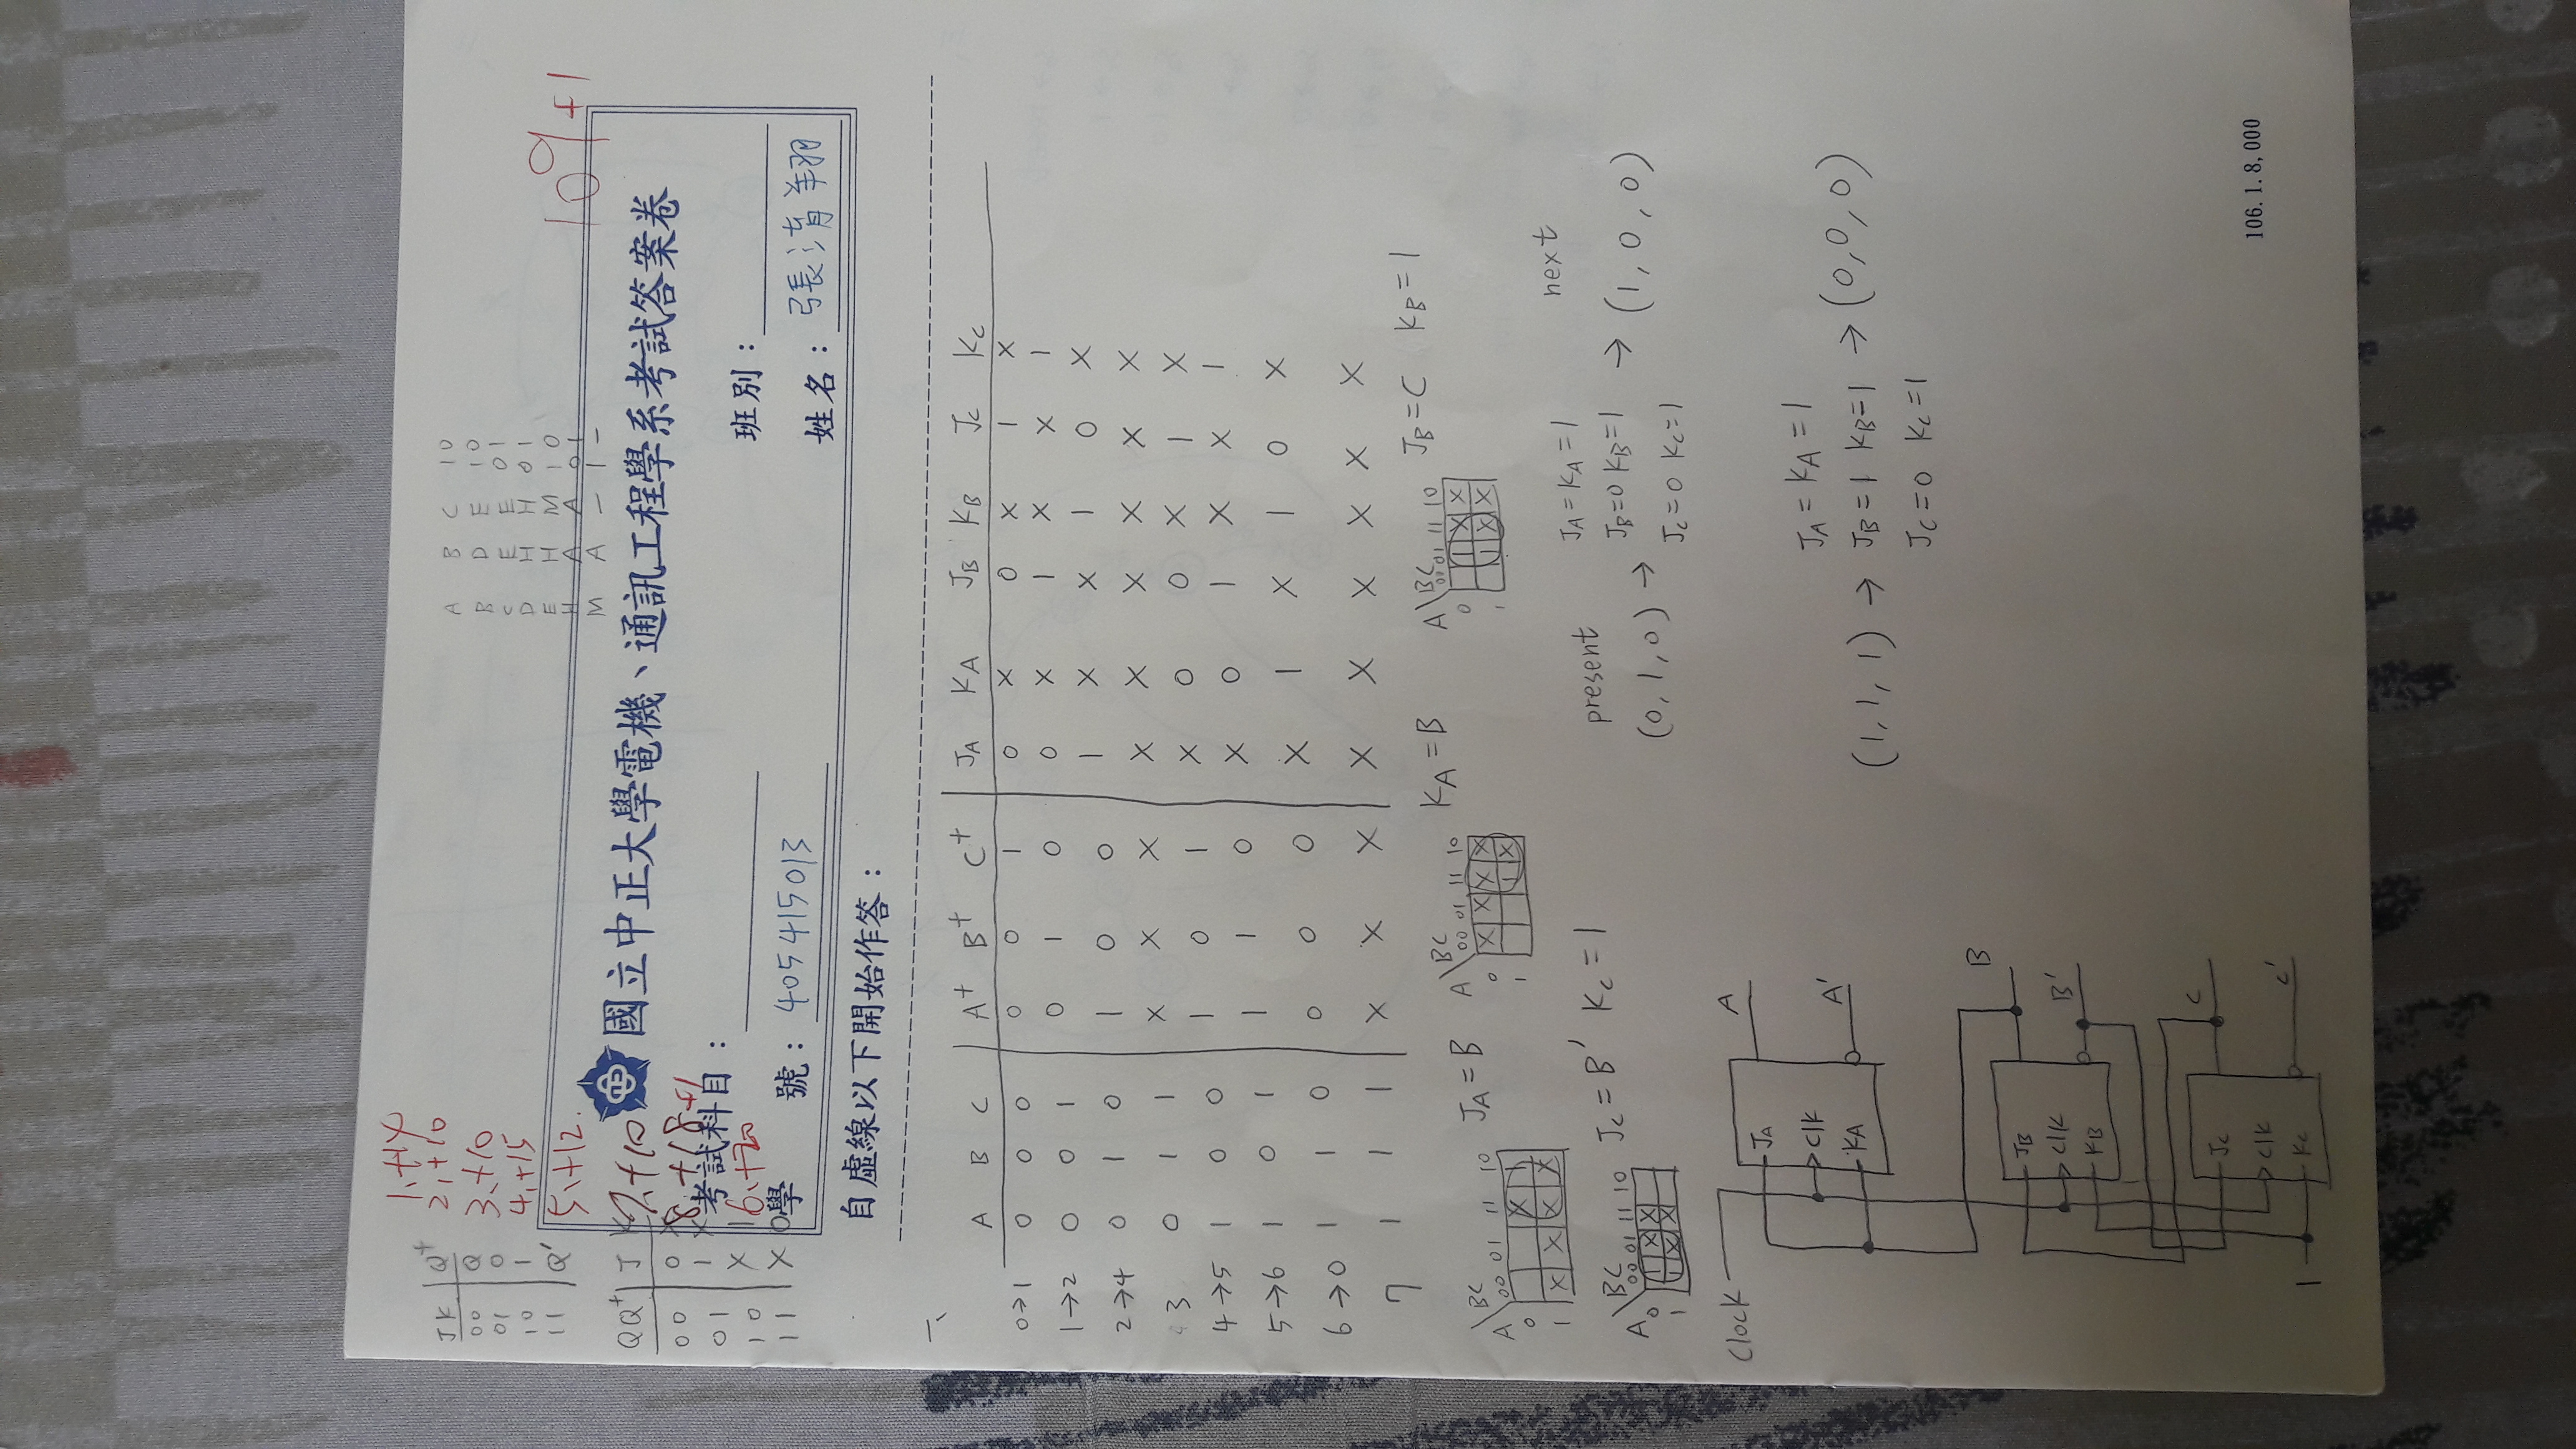 JK Q⁺
00 Q
01 0
10 1
11 Q'
QQ⁺ J
00 0
01 1 X
10 X 1
11 X 0
1、+14
2、+10
3、+10
4、+15
5、+12.
7、+10
8、+18+1
6、+20
A B C 10
B D E 10
C E E 01
D H H 01
E H M 10
H A A 01
M A — 1 –
109+1
國立中正大學電機、通訊工程學系考試答案卷
考試科目：
班別：
學 號：405415013
姓名：張清翔
自虛線以下開始作答：
一、
A B C A⁺ B⁺ C⁺ JA KA JB KB JC KC
0→1 0 0 0 0 0 1 0 X 0 X 1 X
1→2 0 0 1 0 1 0 0 X 1 X X 1
2→4 0 1 0 1 0 0 1 X X 1 0 X
3 0 1 1 X X X X X X X X X
4→5 1 0 0 1 0 1 X 0 0 X 1 X
5→6 1 0 1 1 1 0 X 0 1 X X 1
6→0 1 1 0 0 0 0 X 1 X 1 0 X
7 1 1 1 X X X X X X X X X
A\BC 00 01 11 10
0 X 1
1 X X X X
JA=B
A\BC 00 01 11 10
0 X X X X
1 1 X
KA=B
A\BC 00 01 11 10
0 1 X X
1 1 X X
JB=C KB=1
A\BC 00 01 11 10
0 1 X X
1 1 X X
JC=B' KC=1
present next
(0,1,0) → JA=KA=1
JB=0 KB=1
JC=0 KC=1
→ (1,0,0)
(1,1,1) → JA=KA=1
JB=1 KB=1
JC=0 KC=1
→ (0,0,0)
Clock
JA A
Clk
KA A'
JB B
Clk
KB B'
JC C
Clk
1 KC C'
106.1.8,000